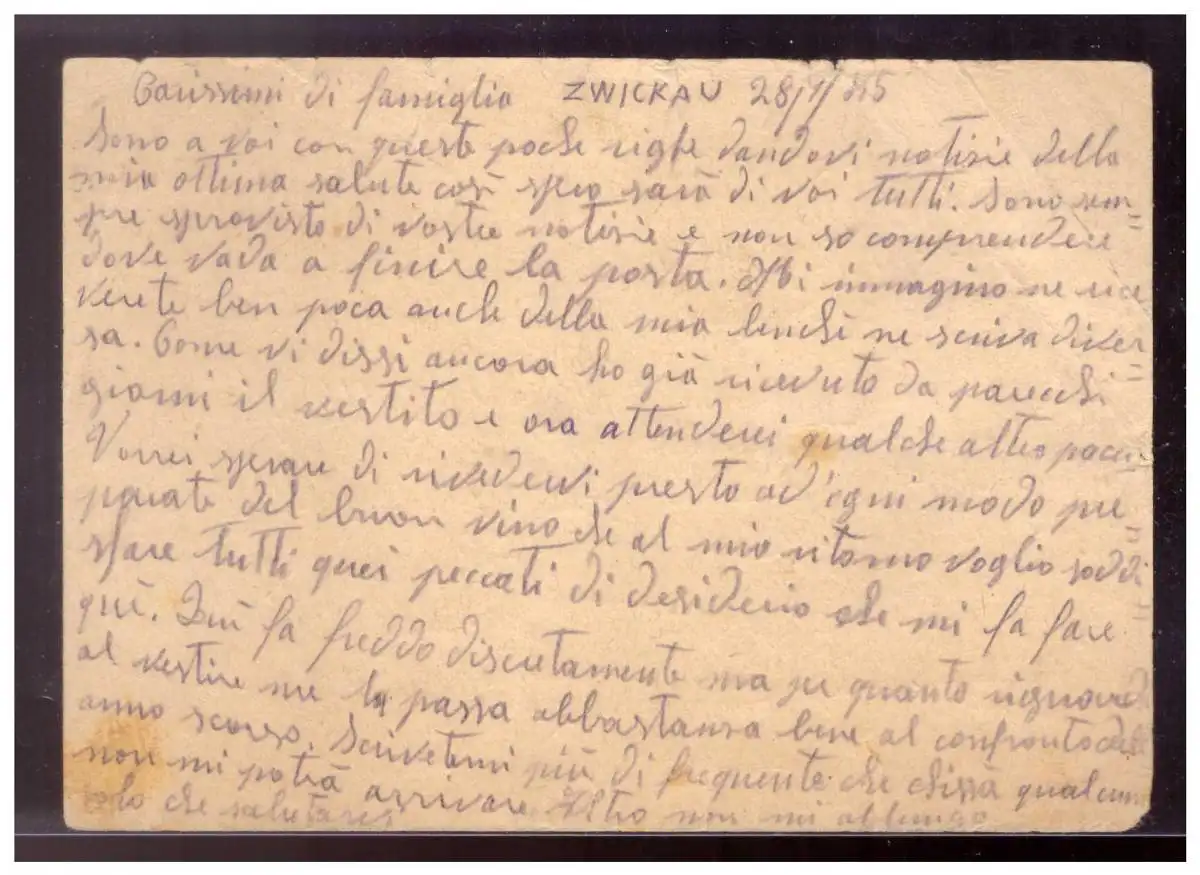 Carissimi di famiglia ZWICKAU 28/1/45
Sono a voi con queste poche righe dandovi notizie della
mia ottima salute così spero sarà di voi tutti. Sono sem=
pre sprovisto di vostre notizie e non so comprendere
dove vada a finire la posta. Mi immagino ne rice
verete ben poca anche della mia benchè ne scriva diver=
sa. Come vi dissi ancora ho già ricevuto da parecchi
giorni il vestito e ora attenderei qualche altro pacco.
Vorrei sperare di rivedervi presto ad'ogni modo pre=
parate del buon vino che al mio ritorno voglio soddi=
sfare tutti quei peccati di desiderio che mi fa fare
quì. Quì fa freddo discretamente ma per quanto riguarda
al vestire me la passa abbastanza bene al confronto dell
anno scorso. Scrivetemi più di frequente che chissà qualcuna
non mi potrà arrivare. Altro non mi allungo
solo che salutarvi